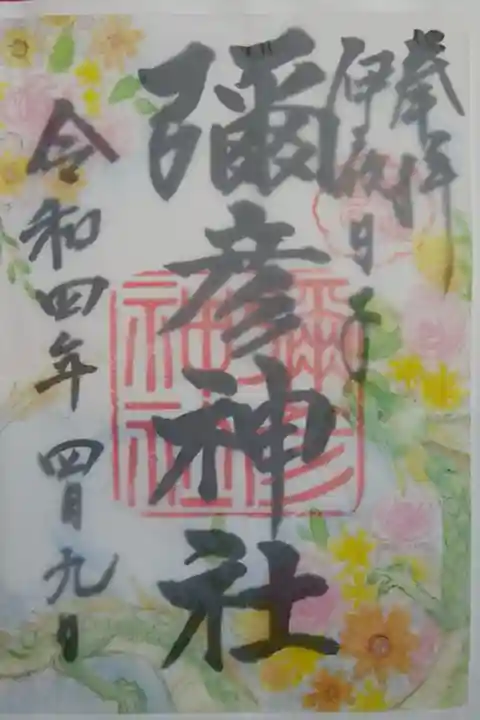 奉拝
伊夜日子
彌彦神社
彌彦
神社
令和四年 四月九日